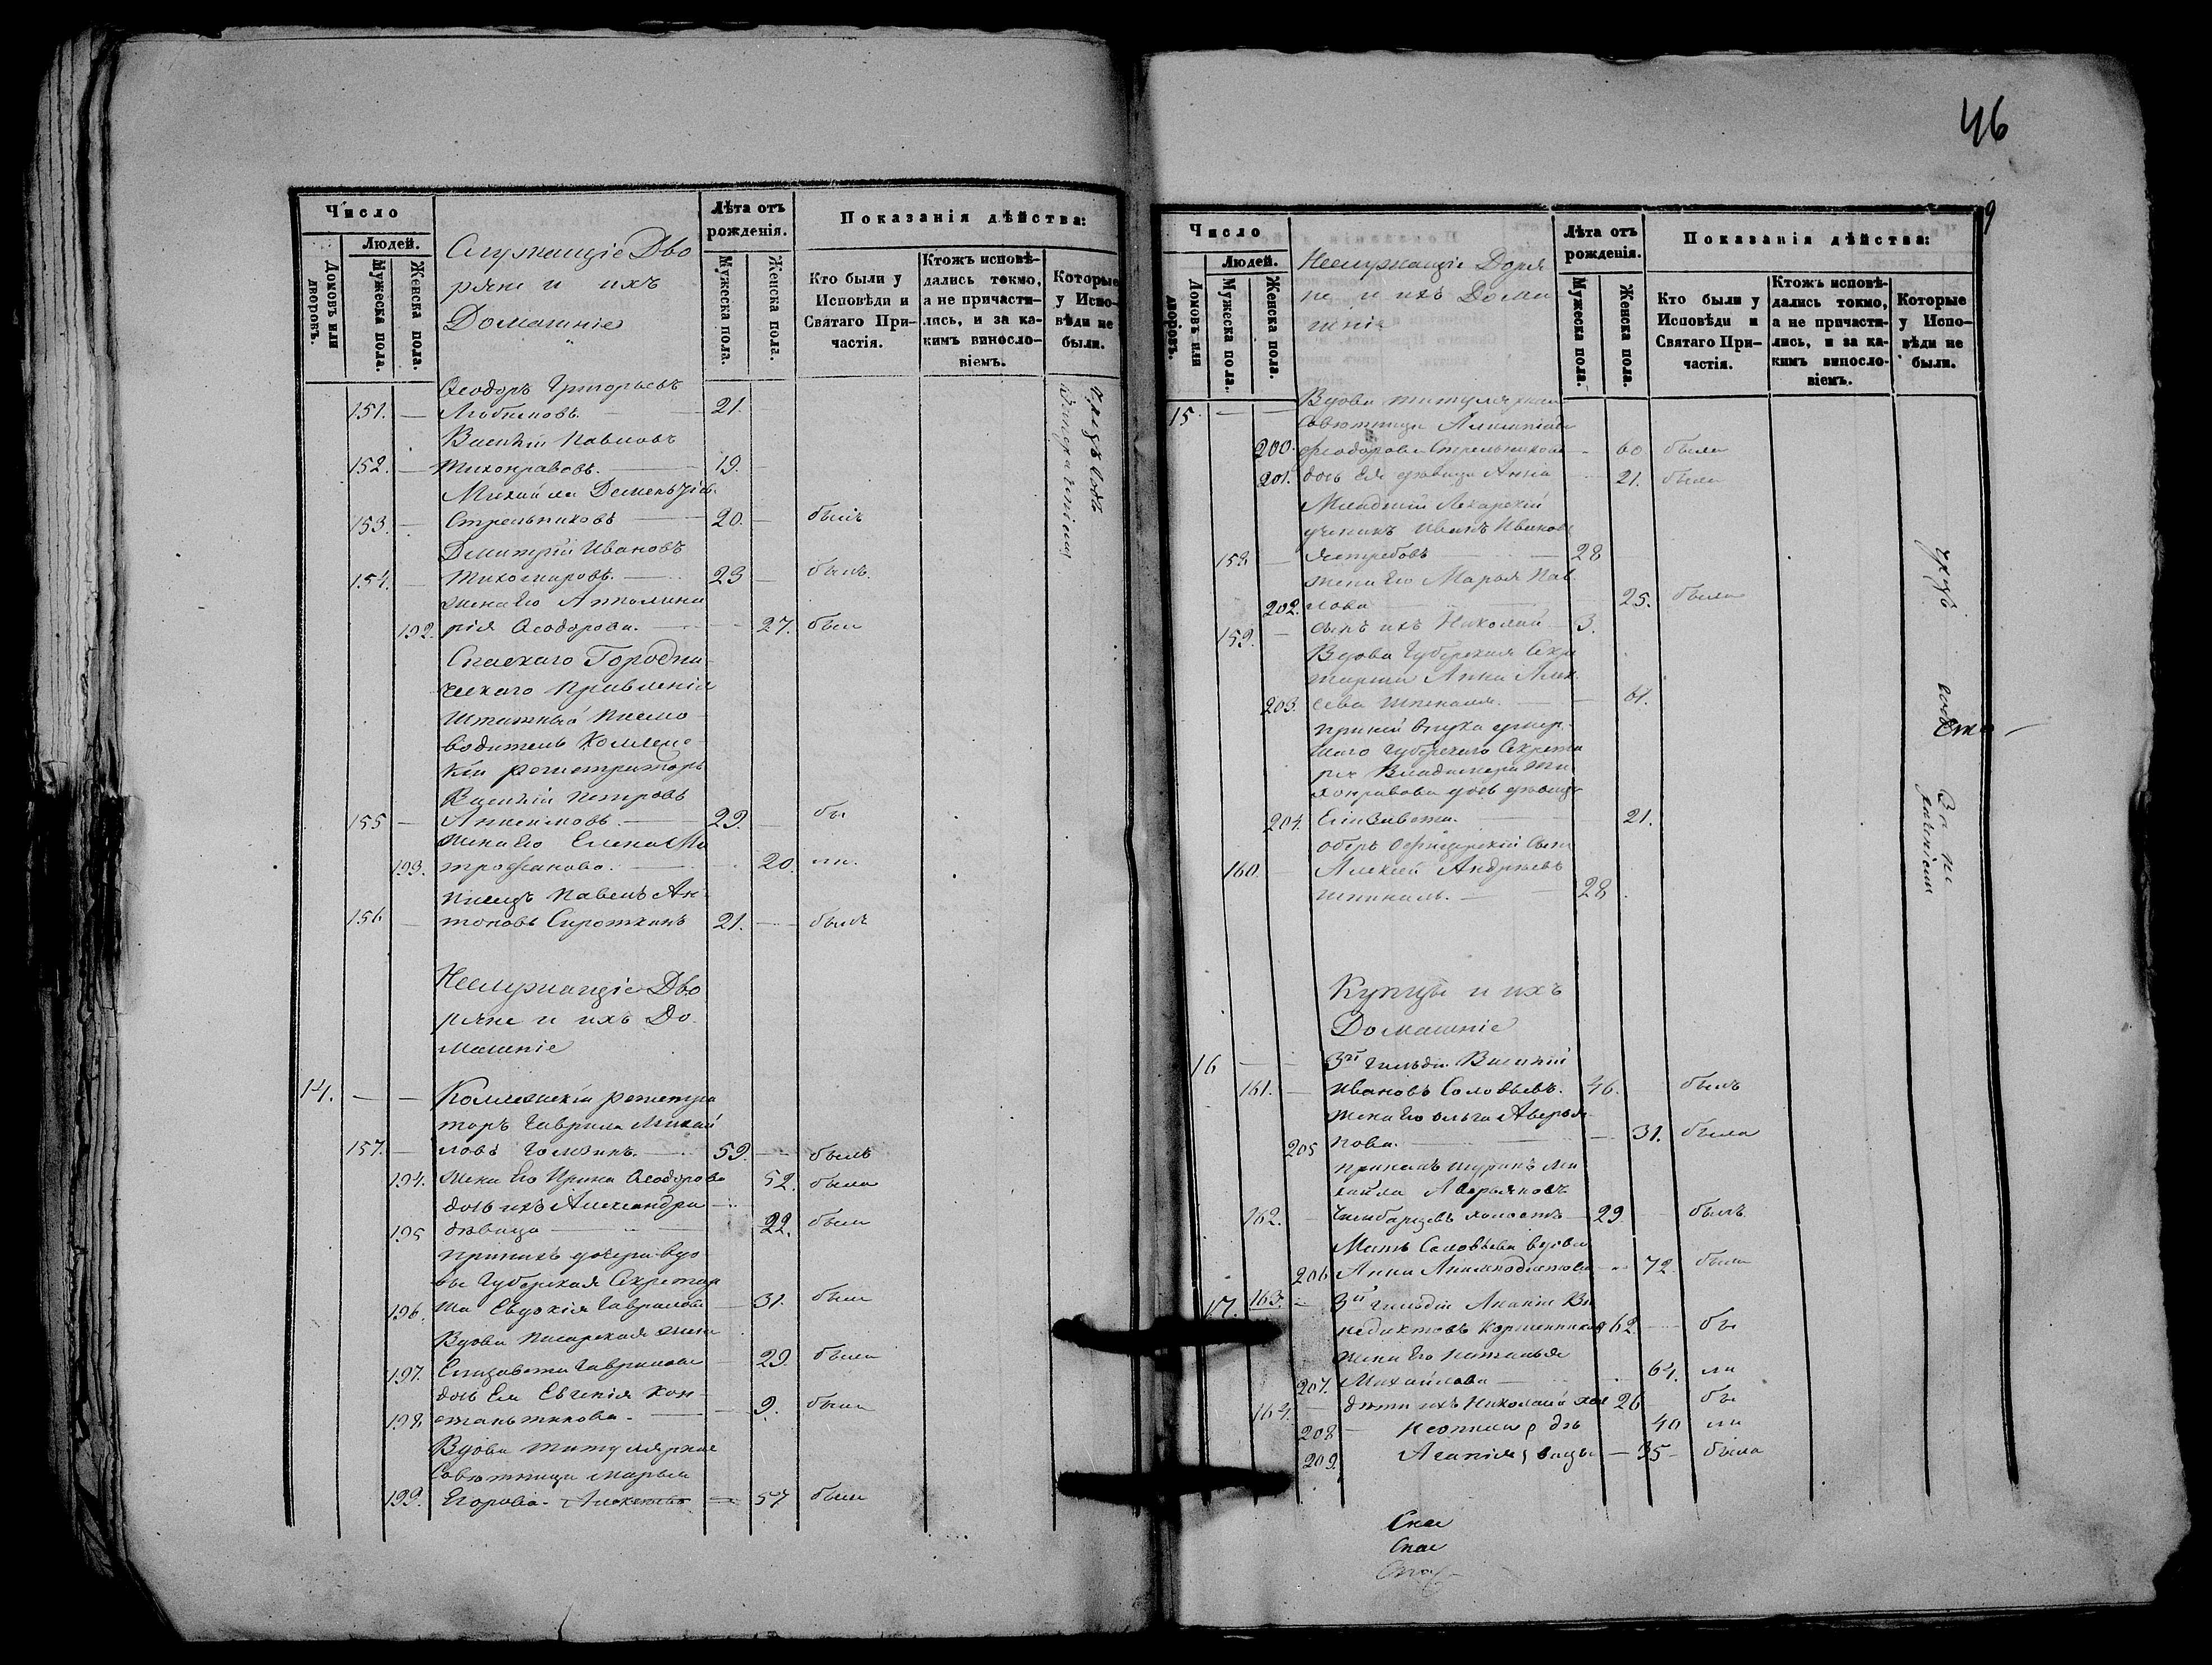 Число
Людей.
Домовъ или дворовъ.
Мужеска пола.
Женска пола.
Служащіе Дво
ряне и ихъ
Домашніе
Лѣта отъ рожденія.
Мужеска пола.
Женска пола.
Показанія дѣйства:
Кто были у Исповѣди и Святаго Причастія.
Ктожъ исповѣдались токмо, а не причастились, и за какимъ винословіемъ.
Которые у Исповѣди не были.
Ѳеодоръ Григорьевъ
151. — 21.
Василій Павловъ
152. — Тихонравовъ. — 19. —
Михайла
153. — Стрельниковъ — 20. — былъ
Дмитрій Ивановъ
154. — Тихомировъ. — 23 — былъ.
жена Его Апполина
192. рія Ѳеодорова. — 27. была
Спаскаго Городни
ческаго Правленія
Штатный Писмо
водитель Коллежс
кій регистраторъ
Василій Петровъ
155 — Анисимовъ. — 29. — бы
жена Его Елена Ми
193. трофанова. — 20. ли.
писецъ Павелъ Ан
156 — тоновъ Сироткинъ 21. — былъ
Неслужащіе Дво
ряне и ихъ До
машніе
14. — — Коллежскій регистра
торъ Гаврила Михай
157. — ловъ — 59. — былъ
194. жена Его Ирина Ѳеодорова 52. была
дочь ихъ Александра
195 дѣвица — 22. была
при нихъ дочери вдо
вы Губерская Секретар
196. ша Евдокія Гаврилова — 31. была
Вдова Писарская жена
197. Елизавета Гаврилова — 29. была
дочь Ея Евгенія Кон
198 стантинова. — 9. была
Вдова титулярная
Совѣтница Марья
199. Егорова. — 57 была
46
9
Число
Людей.
Домовъ или дворовъ.
Мужеска пола.
Женска пола.
Неслужащіе Дворя
не и ихъ Дома
шніе
Лѣта отъ рожденія.
Мужеска пола.
Женска пола.
Показанія дѣйства:
Кто были у Исповѣди и Святаго Причастія.
Ктожъ исповѣдались токмо, а не причастились, и за какимъ винословіемъ.
Которые у Исповѣди не были.
15. — — Вдова титулярная
Совѣтница
200. Ѳеодорова Стрельникова — 60 была
201. дочь Ея дѣвица Анна — 21. была
Младшій Лекарскій
ученикъ Иванъ Иванов
158 — Ястребовъ — 28
жена Его Марья Пав
202. лова — 25. была
159. — сынъ ихъ Николай — 3.
Вдова Губерская Секре
тарша Анна Алек
203. сева — 61.
при ней внука умер
шаго Губерскаго Секрета
ря Владимера Ти
хонравова дочь дѣвица
204. Елизавета. — 21.
Оберъ Офицерскій Сынъ
160. — Алексей Андреевъ
— 28
Купцы и ихъ
Домашніе
16 — — 3й гильдіи Василій
161. — Ивановъ Соловьевъ. 46. былъ
жена Его Ольга Аверья
205 нова. — 31. была
при немъ шуринъ Ми
хайла Аверьяновъ
162. — холостъ — 29 былъ.
Мать Соловьева вдова
206 Анна — 72. была
17. 163. — 3й гильдіи Ананій Ве
недиктовъ 62. — бы
жена Его Наталья
207. Михайлова — 64. ли
164. — дѣти ихъ Николай хол 26 бы
208 — дѣ 40 ли
209. Агапія вицы — 35 — была
Спас
Спас
Спас